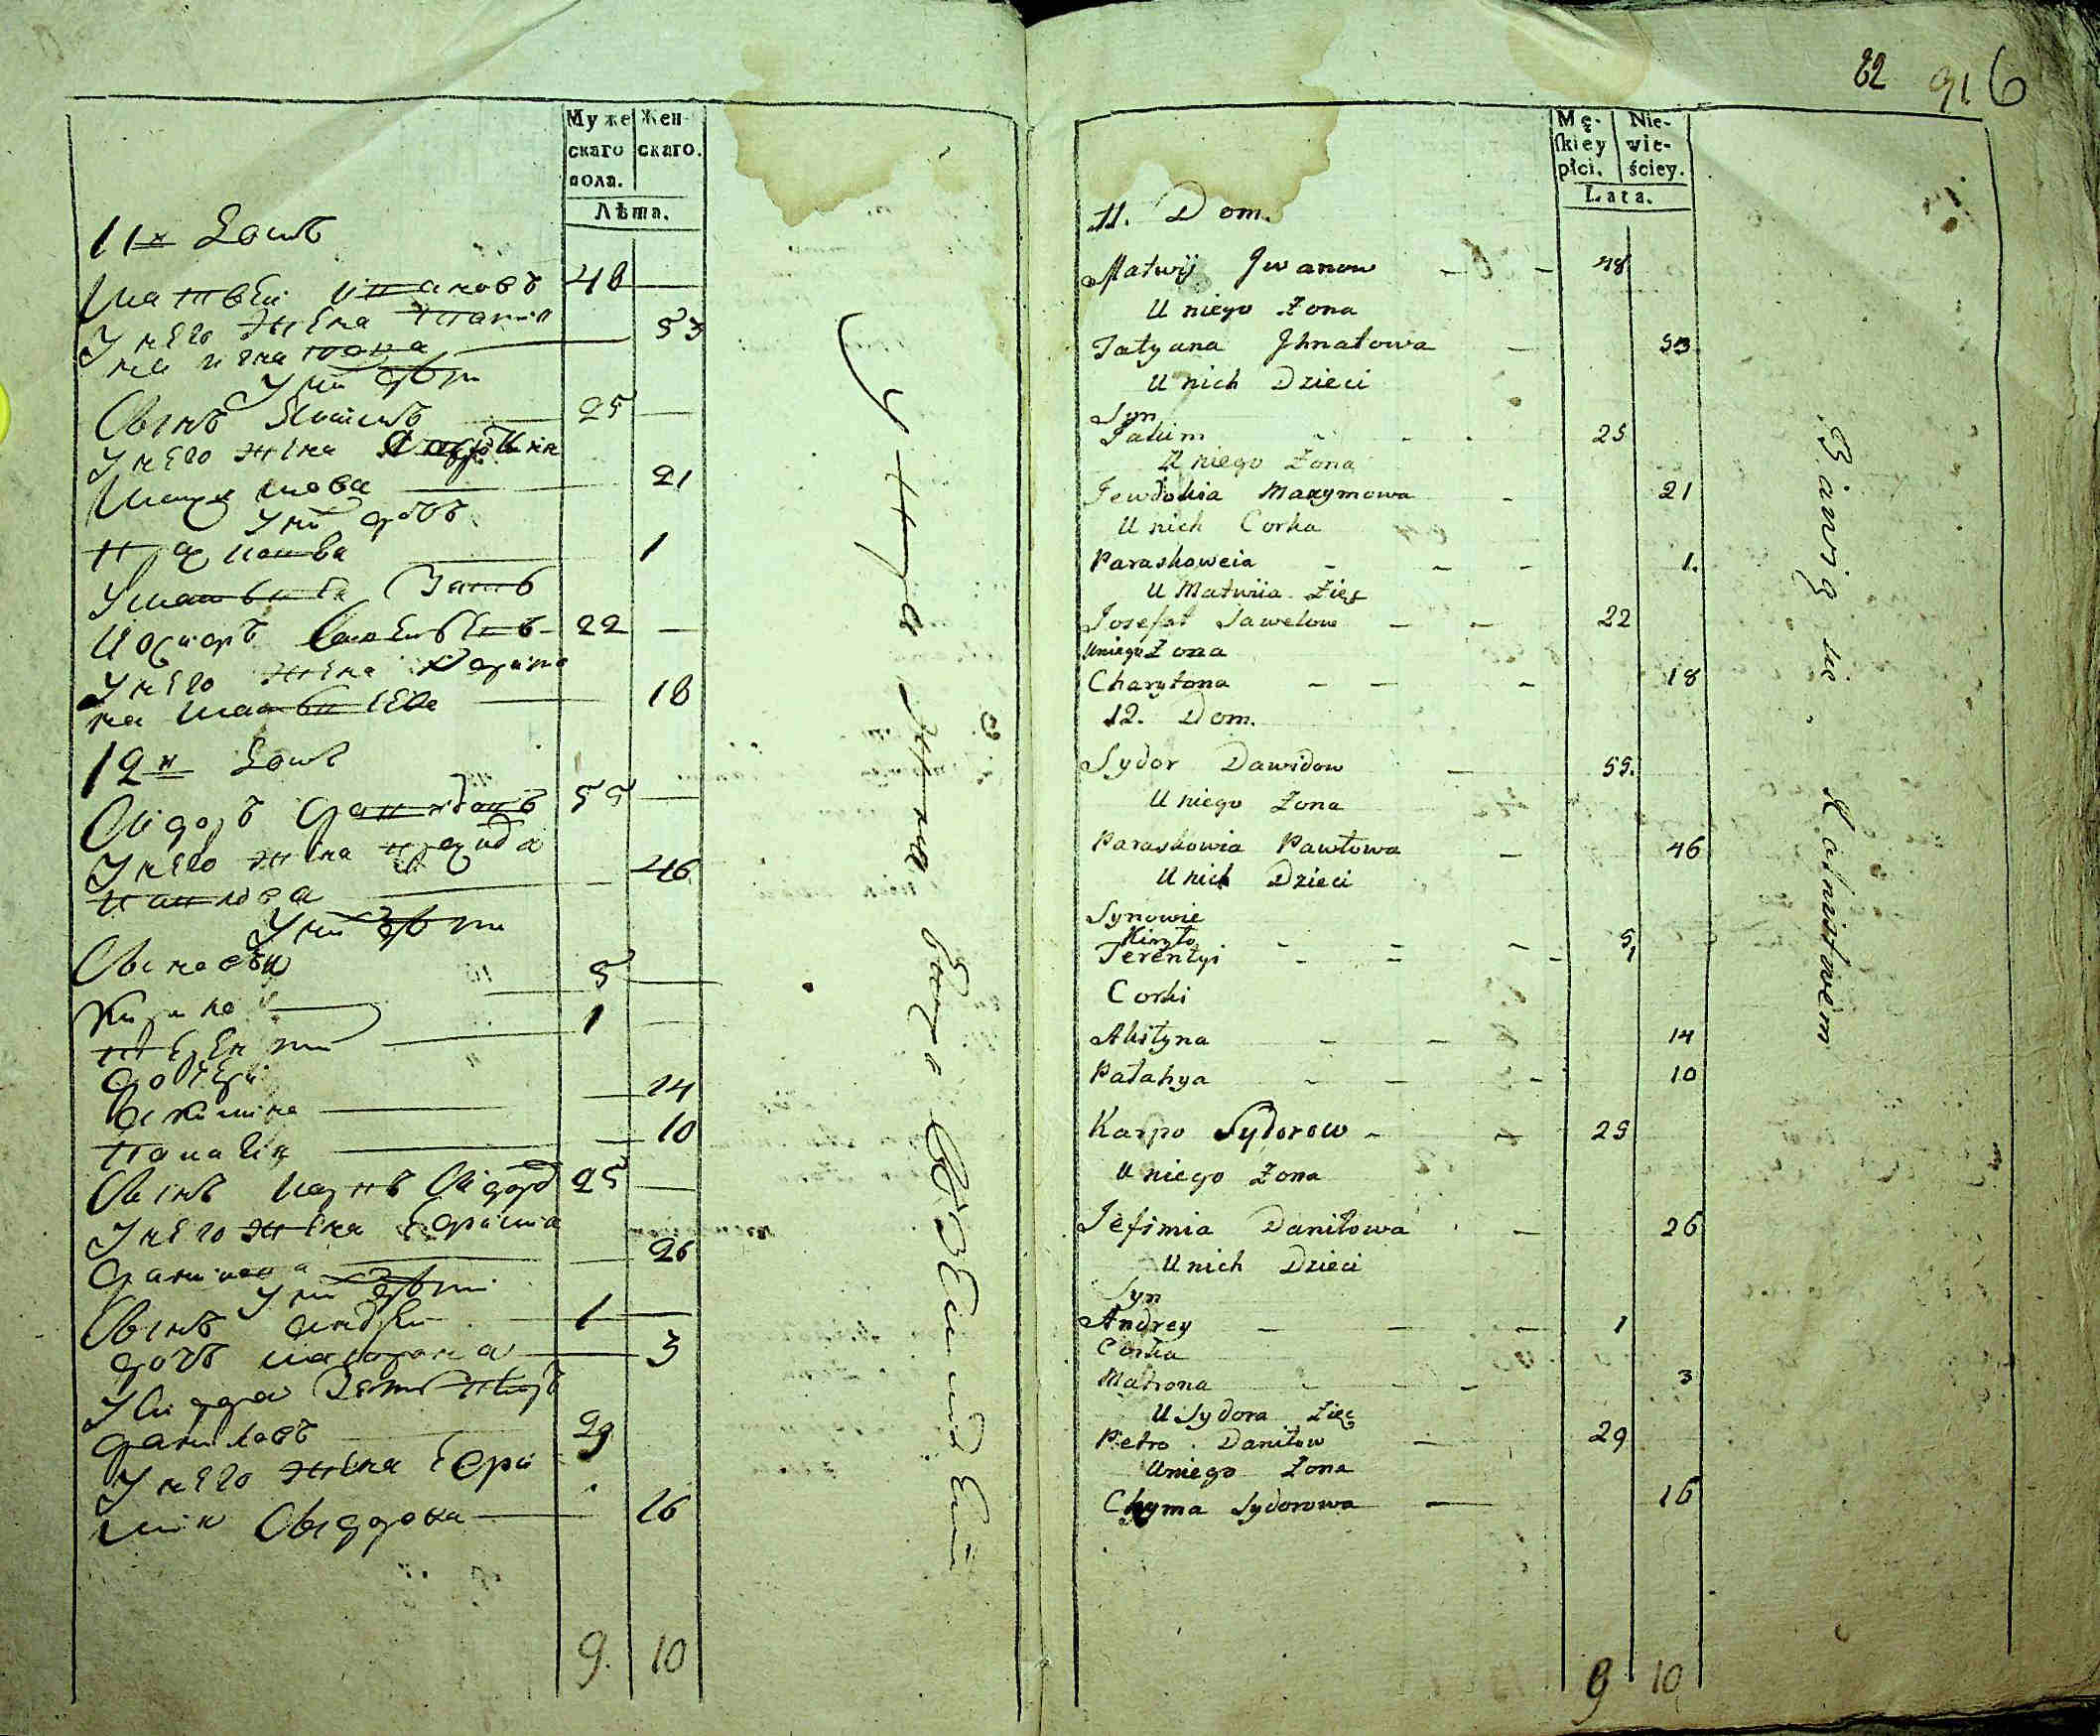 Муже
скаго
пола.
Жен
скаго.
Лѣта.
11й Домъ
Матвей Ивановъ 48
У него жена Татия
на игнатова 53
У ни дѣти
Сынъ Якимъ 25
У него жена
Максимова 21
У ни дочь
1
У Матвия Зять
22
У него жена Харито
на Матвиева 18
12й Домъ
Сидоръ Давидовъ 55
У него жена Параскова
Павлова 46
У ни дѣти
Сыновья
Кирило 5
Терентий 1
Дочери
14
Палагия 10
Сынъ Карпъ Сидоровъ 25
У него жена Ефимия
Данилова 26
У ни дѣти
Сынъ Андрей 1
дочь Матрона 3
У Сидора Зять Петръ
Данилов 29
У него жена Ефи
мия Сидорова 16
9. 10
82 91 6
Mę-
ſkiey
płci.
Nie-
wie-
ściey.
Lata.
11. Dom.
Matwij Jwanow 48
U niego Żona
Tatyana Jhnatowa 53
U nich Dzieci
Syn
Jakim 25
U niego Żona
Jewdokia Maxymowa 21
U nich Corka
Paraskoweia 1.
U Matwiia Zięć
Josefat Sawelow 22
U niego Żona
Charytona 18
12. Dom.
Sydor Dawidow 55.
U niego Żona
Paraskowia Pawłowa 46
U nich Dzieci
Synowie
Kiryło 5
Terentyi 1
Corki
Akstyna 14
Pałahya 10
Karpo Sydorow 25
U niego Żona
Jefimia Daniłowa 26
U nich Dzieci
Syn
Andrey 1
Corka
Matrona 3
U Sydora Zięć
Petro Daniłow 29
U niego Żona
Chyma Sydorowa 16
9 10